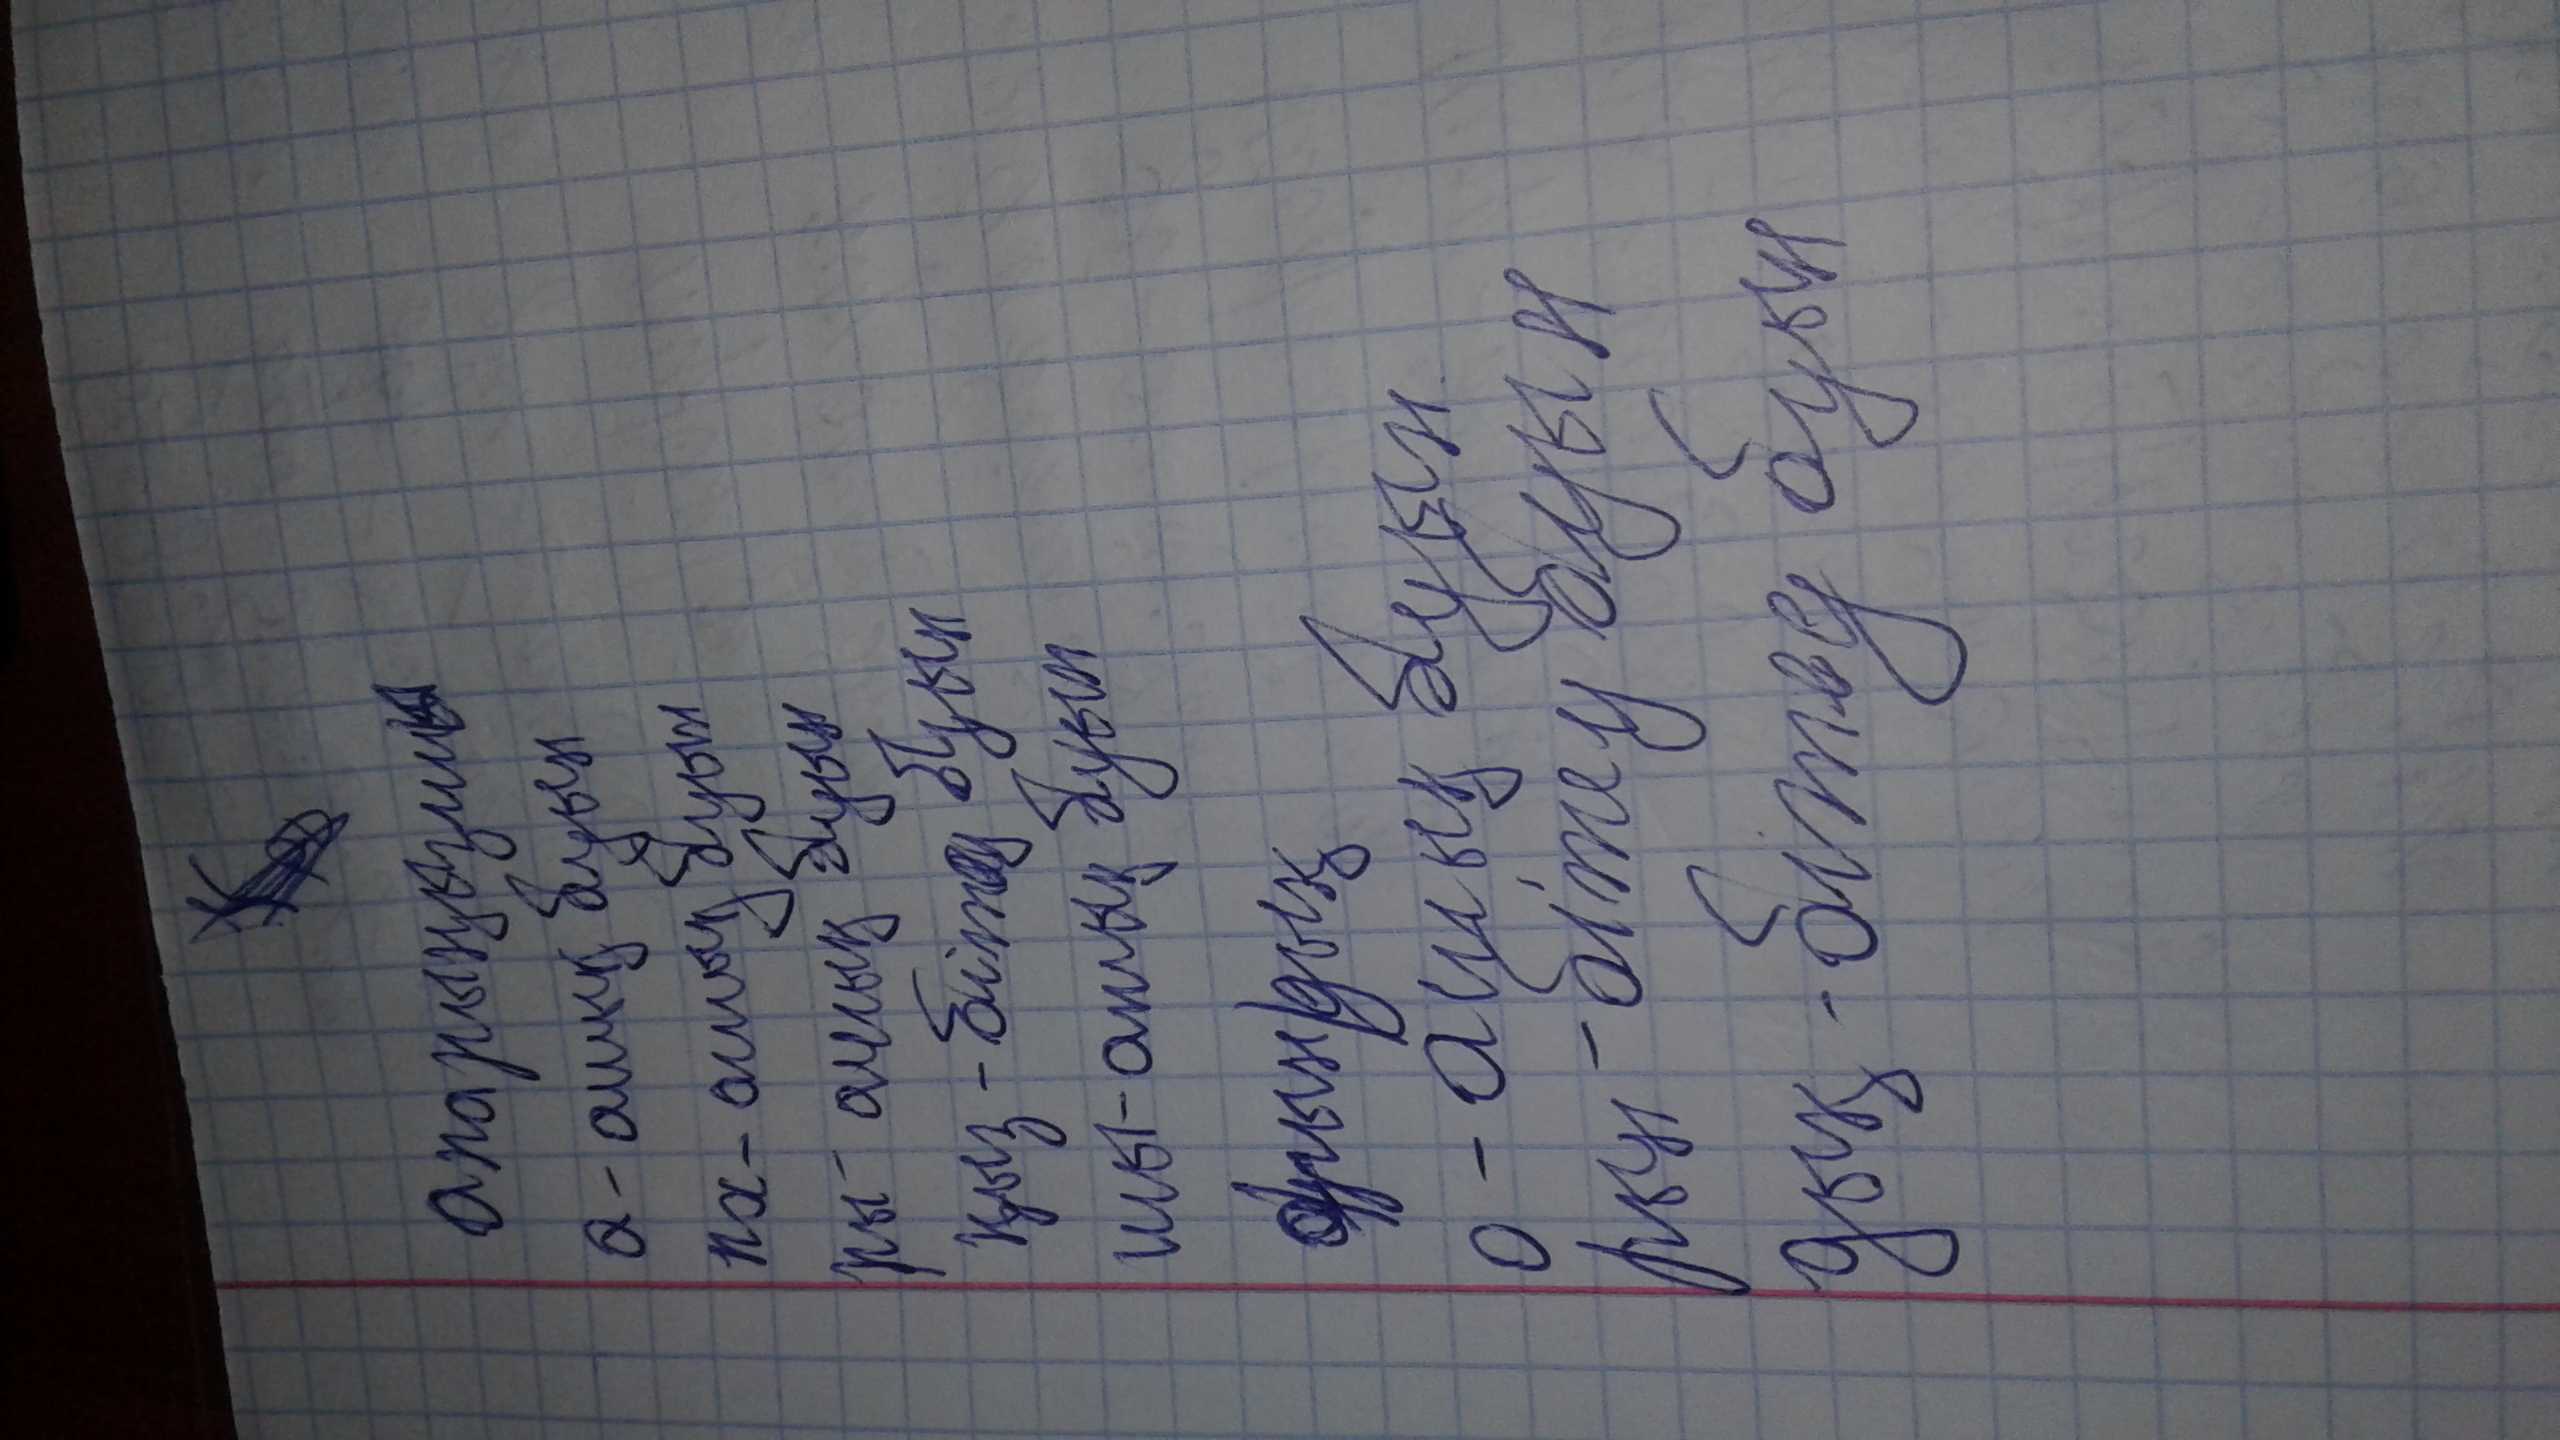 апарыңызшы
а-ашық буын
па-ашық буын
ры-ашық буын
ңыз-бітеу буын
шы-ашық буын
орындық
о-ашық буын
рын-бітеу буын
дық-бітеу буын